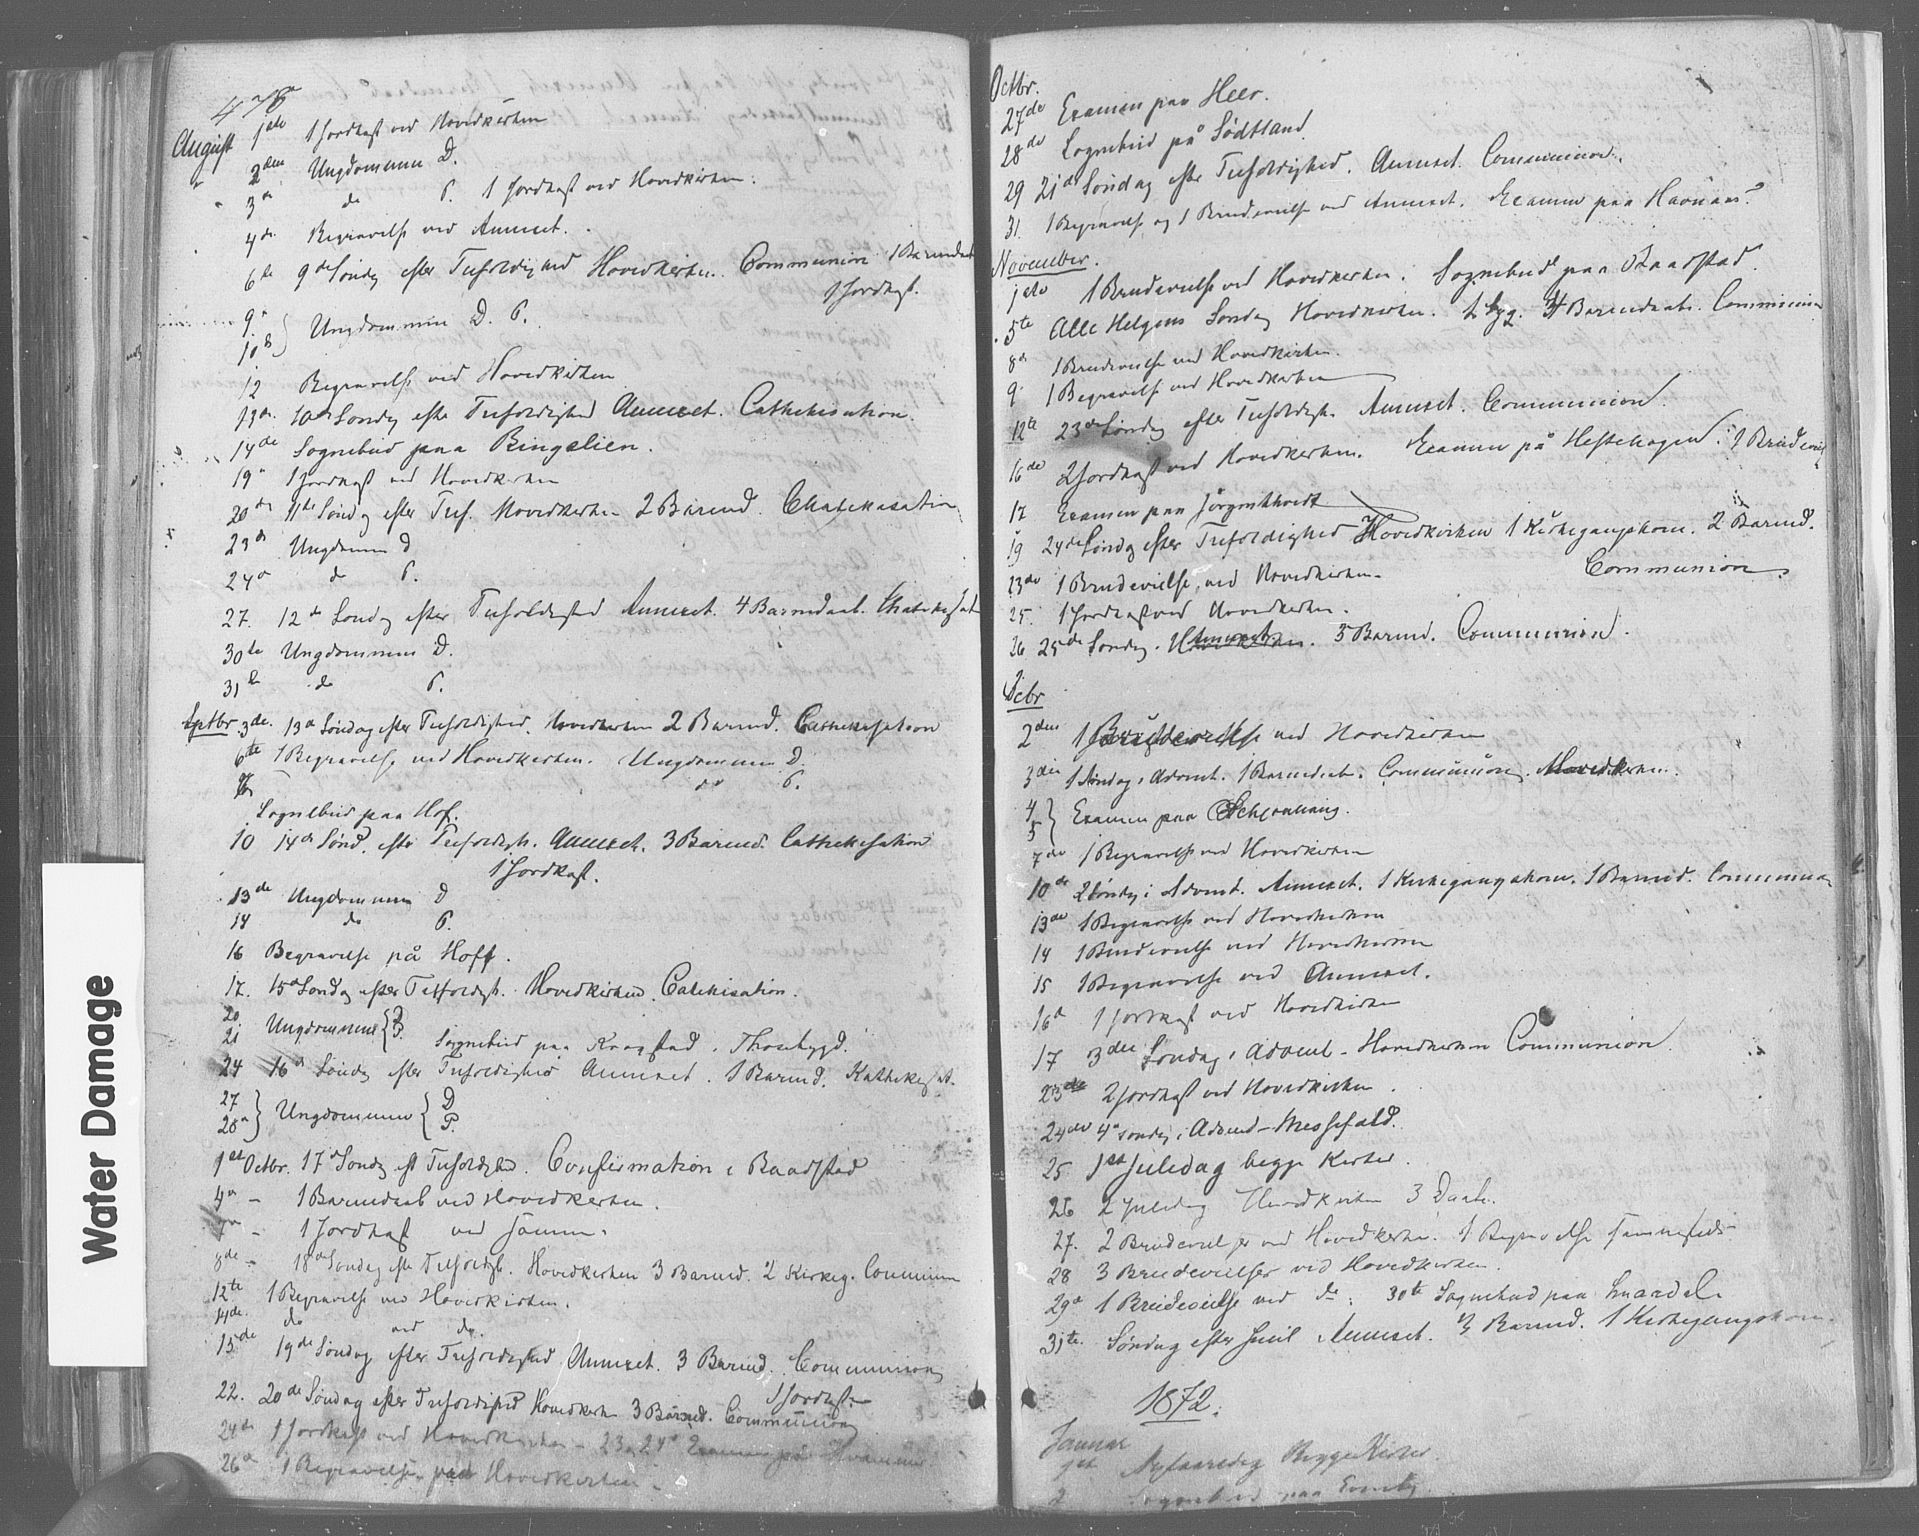 478
August 1ste 1 Jordkast ved Hovedkirken
2den Ungdommen D.
3 do P. 1 Jordkast ved Hovedkirken.
4de Begravelse ved Annexet.
6te 9de Søndag efter Trefoldighed Hovedkirken. Communion 1 Barnedaab
1 Jordkast.
9
10de } Ungdommen D. P.
12 Begravelse ved Hovedkirken
13de 10de Søndag efter Trefoldighed Annexet. Cathekisation.
14de Sognebud paa Ringelien.
19 1 Jordkast ved Hovedkirken
20de 11te Søndag efter Tref. Hovedkirken 2 Barned. Chatekasation
23de Ungdommen D
24 do P.
27. 12de Søndag efter Trefoldighed Annexet. 4 Barndaab. Chatekisat
30te Ungdommen D.
31te do P.
Septbr. 3de. 13de Søndag efter Trefoldighed. Hovedkirken 2 Barned. Cathekisation
6te 1 Begravelse ved Hovedkirken. Ungdommen D.
7 do P.
Sognebud paa Hof.
10 14de Sønd. efter Trefoldigh. Annexet. 3 Barned. Cathekisation
1 Jordkast.
13de Ungdommen D
14 do P.
16 Begravelse på Hoff.
17. 15de Søndag efter Trefoldigh. Hovedkirken. Catekisation.
20
21 Ungdommen { D P. Sognebud paa Kragstad. Thorebygd.
24 16de Søndag efter Trefoldighed Annexet. 1 Barned. Kathekisat.
27
28 } Ungdommen { D P.
1ste Octbr. 17de Søndag eft Trefoldighed. Confirmation i Baadstad
4 - 1 Barnedaab ved Hovedkirken.
7 - 1 Jordkast ved Samme.
8de - 18de Søndag eft Trefoldigh. Hovedkirken 3 Barned. 2 Kirkeg. Communion
12te 1 Begravelse ved Hovedkirken.
14de. do ved do.
15de 19de Søndag efter Trefoldighed Annexet. 3 Barned. Communion
1 Jordkast
22. 20de Søndag efter Trefoldighed Hovedkirken 3 Barned. Communion
24de 1 Jordkast ved Hovedkirken - 23 24 Examen på
26 1 Begravelse paa Hovedkirken.
Octbr.
27de Examen paa Heer.
28de Sognebud på Sødtland
29 21de Søndag efter Trefoldighed. Annexet. Communion.
31. 1 Begravelse og 1 Brudevielse ved Annexet. Examen paa
November.
1ste 1 Brudevielse ved Hovedkirken. Sognebud paa Baadstad.
5te Alle Helgens Søndag Hovedkirken. Barnedaab. Communion
8 1 Brudevielse ved Hovedkirken.
9 1 Begravelse ved Hovedkirken
12te 23de Søndag efter Trefoldigh. Annexet. Communion.
16de 2 Jordkast ved Hovedkirken. Examen på Hestehagen. 1 Brudeviel
17 Examen paa
19 24de Søndag efter Trefoldighed Hovedkirken 1 Kirkegangskone. 2 Barned.
Communion.
23de 1 Brudevielse ved Hovedkirken.
25. 1 Jordkast ved Hovedkirken.
26 25de Søndag. Annexet. 3 Barned. Communion.
Dcbr
2den 1 Brudevielse ved Hovedkirken
3die 1 Søndag i Advent. 1 Barnedaab. Communion. Hovedkirken.
4
5 } Examen paa
7de 1 Begravelse ved Hovedkirken
10de 2 Søndag i Advent. Annexet. 1 Kirkegangskone. 1 Barned. Communion
13de 1 Begravelse ved Hovedkirken
14 1 Brudevielse ved Hovedkirken
15 1 Begravelse ved Annexet.
16de 1 Jordkast ved Hovedkirken
17 3die Søndag i Advent - Hovedkirken Communion.
23de 2 Jordkast ved Hovedkirken.
24de 4 Søndag i Advend - Messefald.
25. 1ste Juledag begge Kirker.
26 2 Juledag Hovedkirken 3 Daab.
27. 2 Brudevielser ved Hovedkirken. 1 Begravelse sammesteds
28 3 Brudevielser ved Hovedkirken.
29 1 Brudevielse ved do. 30te Sognebud paa
31te. Søndag efter Juul Annexet. 3 Barned. 1 Kirkegangskone.
1872.
Januar
1ste Nytaarsdag Begge Kirker.
2 Sognebud paa
Water Damage